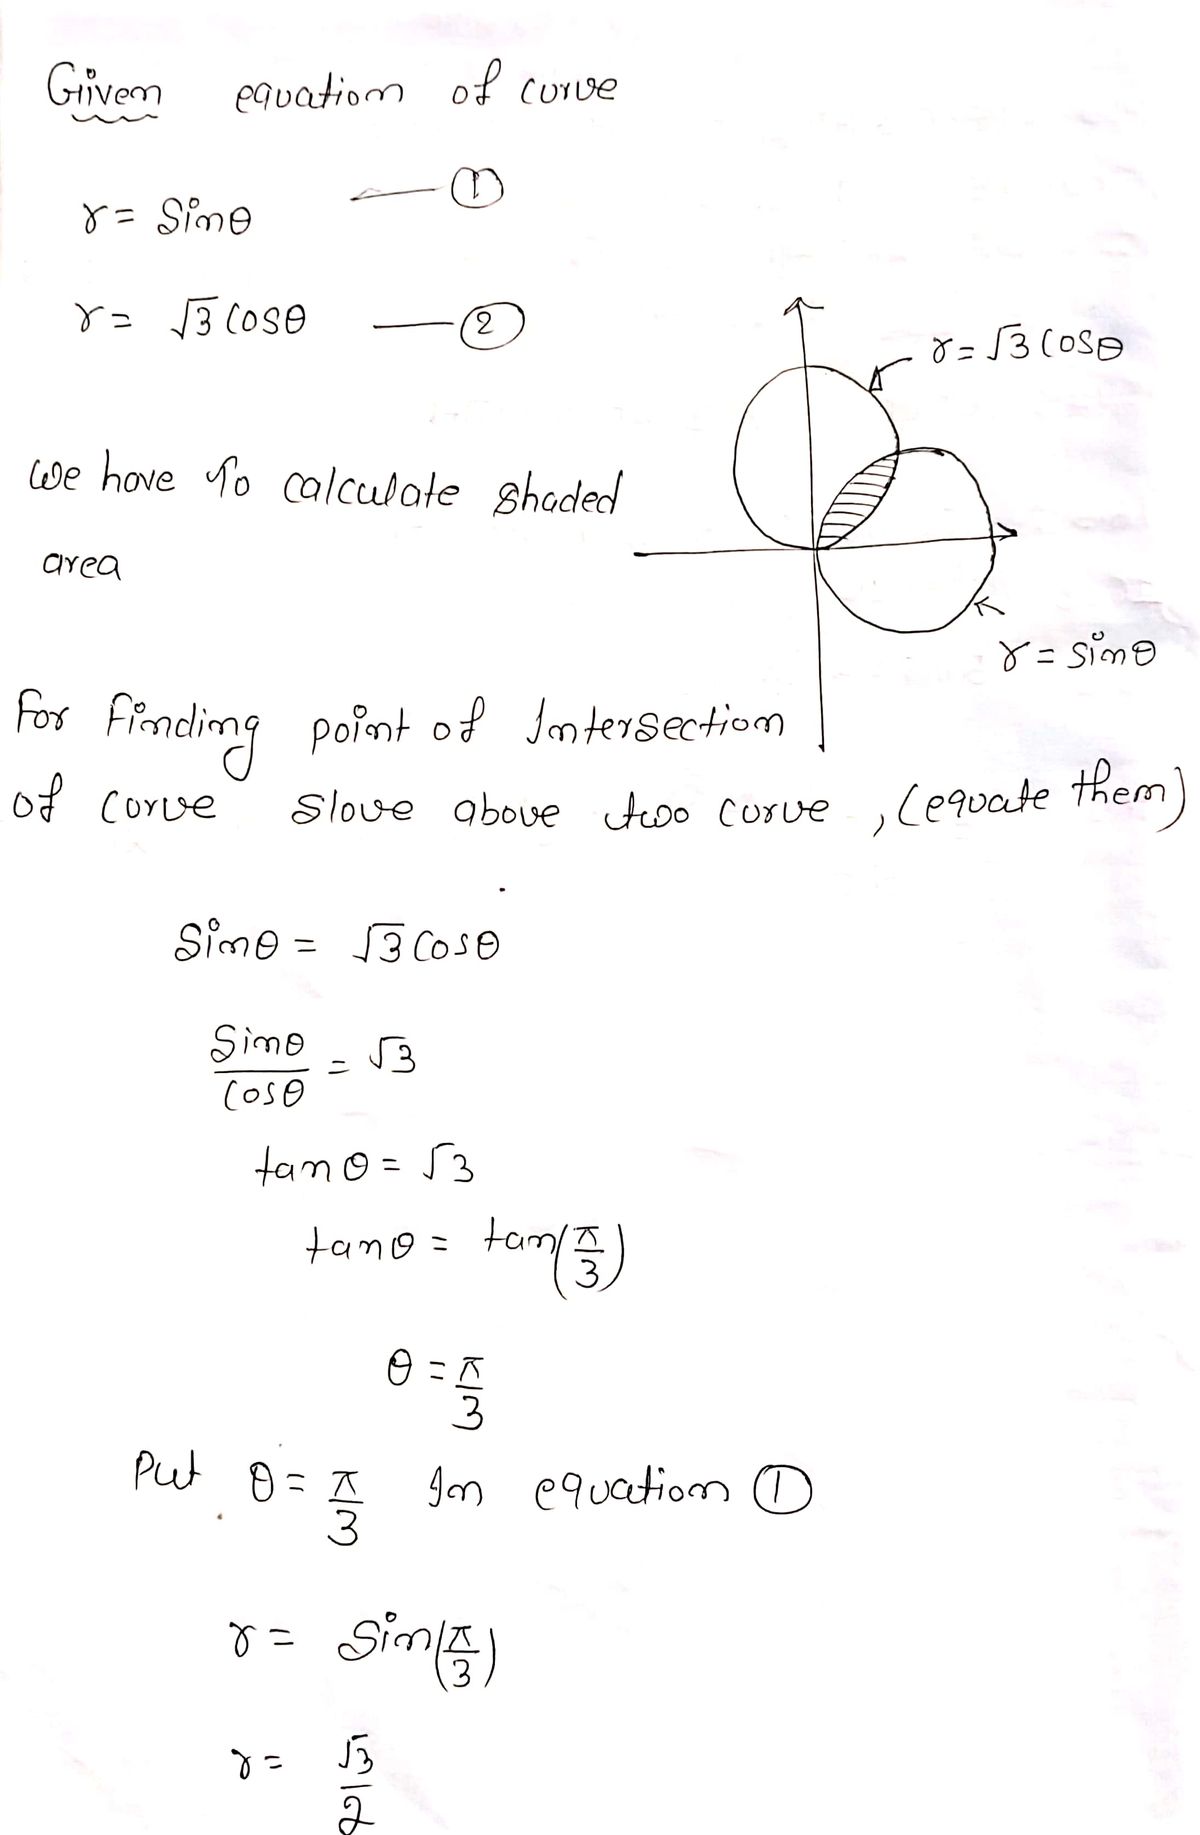 Given equation of curve
r = Sinθ —①
r = √3 Cosθ —②
r = √3 Cosθ
We have to calculate shaded
area
r = Sinθ
For Finding point of Intersection
of curve slove above two curve, (equate them)
Sinθ = √3 Cosθ
Sinθ/Cosθ = √3
tanθ = √3
tanθ = tan(π/3)
θ = π/3
Put θ = π/3 In equation ①
r = Sin(π/3)
r = √3/2